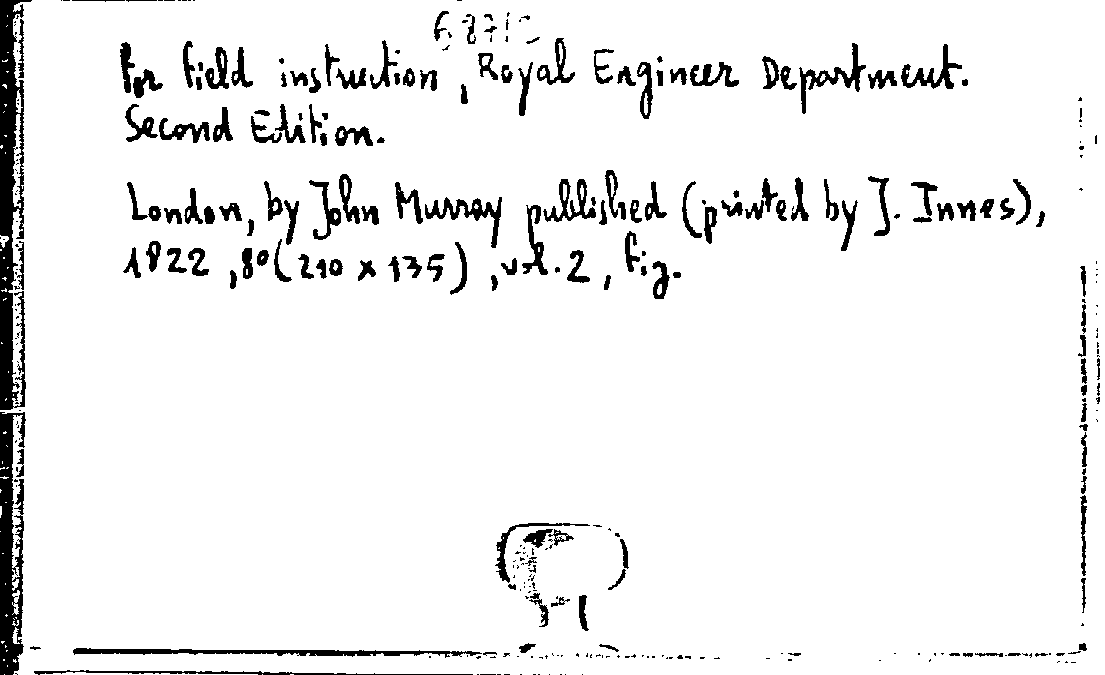 6871
for field instruction, Royal Engineer Department.
Second Edition.
London, by John Murray published (printed by J. Innes),
1822, 8° (210 x 135), vol. 2, fig.